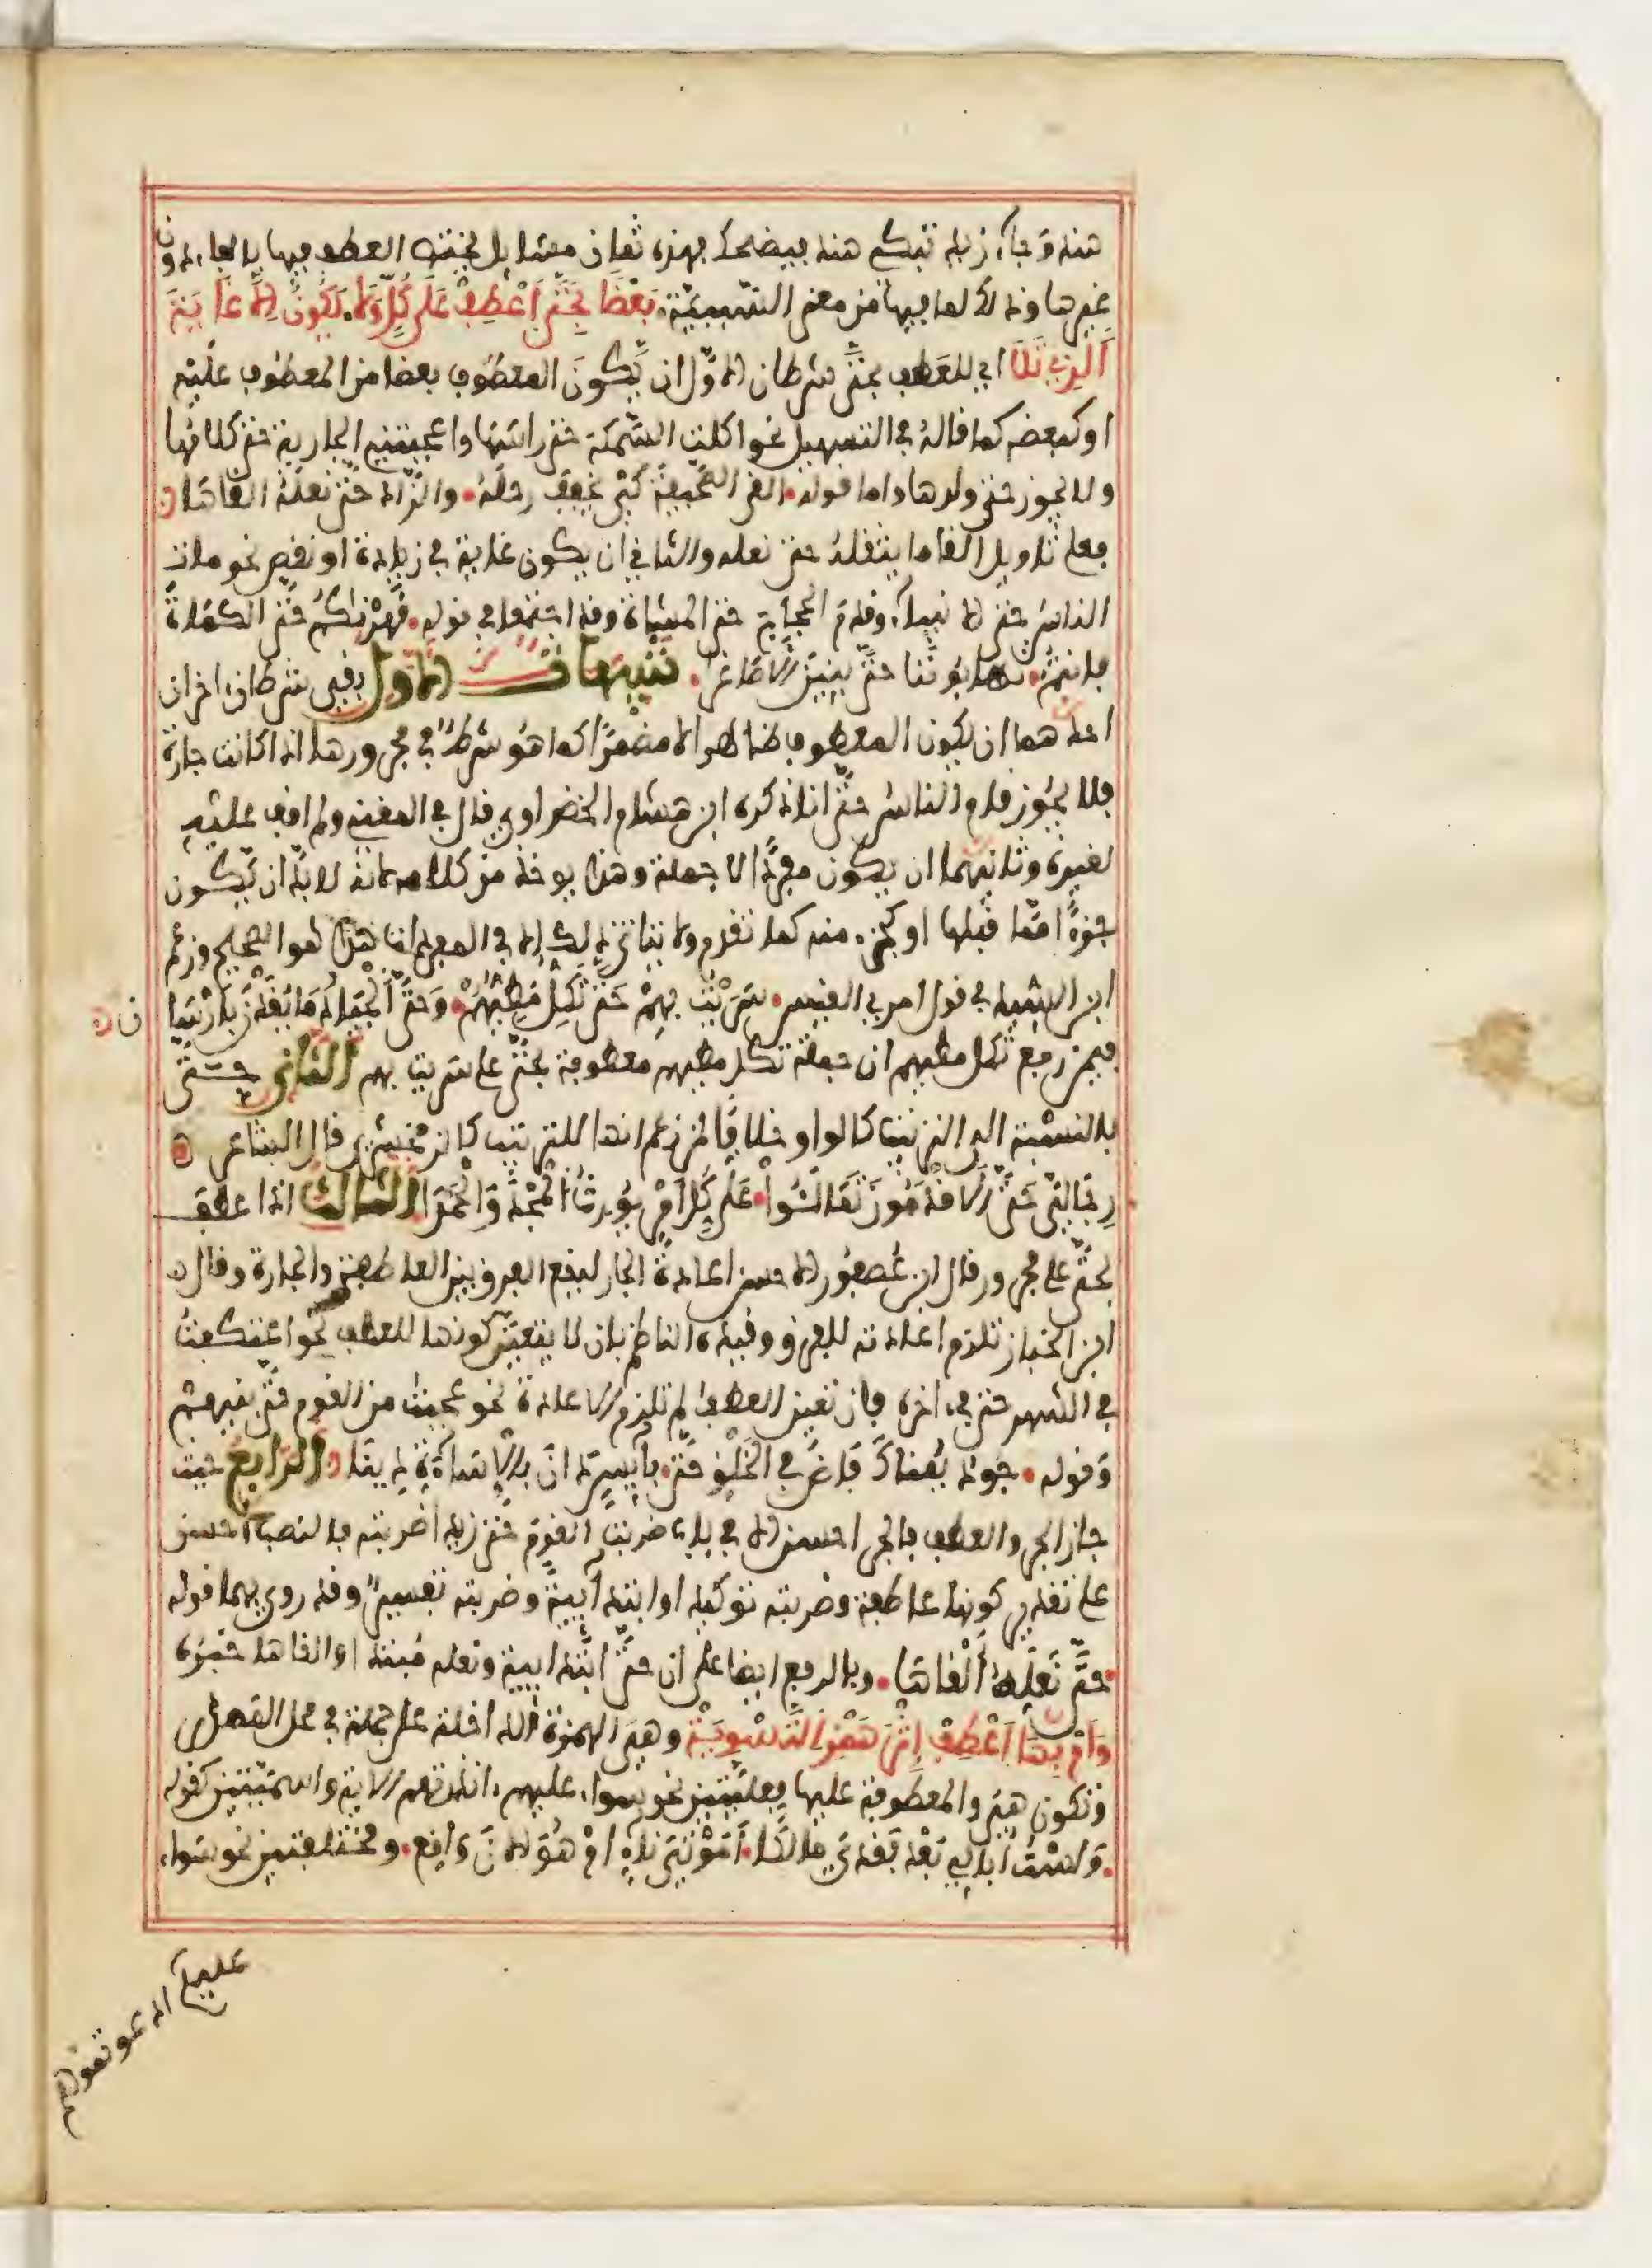 هند وجاء زيد تبكي هند فيضحك فهذه ثمان مسائل يختص العطف فيها بالفاء دون
غيرها وذلك لما فيها من معنى السببية. بعضا بحتى اعطف على كل ولا. يكون الا غاية
الذي تلا اي للعطف بحتى شرطان الاول ان يكون المعطوف بعضا من المعطوف عليه
او كبعضه كما قاله في التسهيل نحو اكلت السمكة حتى راسها واعجبتني الجارية حتى كلامها
ولا يجوز حتى ولدها واما قوله. القى الصحيفة كي يخفف رحله. والزاد حتى نعله القاها
فعلى تاويل القى ما يثقله حتى نعله والثاني ان يكون غاية في زيادة او نقص نحو مات
الناس حتى الانبياء وقدم الحجاج حتى المشاة وقد اجتمعا في قوله. قهرناكم حتى الكماة
فانتم. تهابوننا حتى بنينا الاصاغرا. تنبيهات الاول بقي شرطان اخران
احدهما ان يكون المعطوف ظاهرا لا مضمرا كما هو شرط في مجرورها اذا كانت جارة
فلا يجوز قام الناس حتى انا ذكره ابن هشام الخضراوي قال في المغني ولم اقف عليه
لغيره وثانيهما ان يكون مفردا لا جملة وهذا يوخذ من كلامه لانه لا بد ان يكون
جزءا مما قبلها او كجزء منه كما تقدم ولا يتاتى ذلك الا في المفردات هذا هو الصحيح وزعم
ابن السيد في قول امرئ القيس. سريت بهم حتى تكل مطيهم. وحتى الجياد ما يقدن بارسان
فيمن رفع تكل مطيهم ان جملة تكل مطيهم معطوفة بحتى على سريت بهم الثاني حتى
بالنسبة الى الترتيب كالواو خلافا لمن زعم انها للترتيب كالزمخشري قال الشاعر
رجالي حتى الاقدمون تمالئوا. على كل امر يورث المجد والحمدا الثالث اذا عطف
بحتى على مجرور قال ابن عصفور الاحسن اعادة الجار ليقع الفرق بين العاطفة والجارة وقال
ابن الخباز تلزم اعادته للفرق وقيده الناظم بان لا يتعين كونها للعطف نحو اعتكفت
في الشهر حتى في اخره فان تعين العطف لم تلزم الاعادة نحو عجبت من القوم حتى بنيهم
وقوله. جود يمناك فاض في الخلق حتى. بائس دان بالاساءة دينا. الرابع حيث
جاز الجر والعطف فالجر احسن الا في باب ضربت القوم حتى زيدا ضربته فالنصب احسن
على تقدير كونها عاطفة وضربته توكيد او ابتدائية وضربته تفسير وقد روي بهما قوله
. حتى نعله القاها. وبالرفع ايضا على ان حتى ابتدائية ونعله مبتدا والقاها خبره
وام بها اعطف اثر همز التسوية وهي الهمزة الداخلة على جملة في محل المصدر
وتكون هي والمعطوفة عليها فعليتين نحو سواء عليهم ءانذرتهم الاية واسميتين كقوله
. ولست ابالي بعد فقدي مالكا. اموتي ناء ام هو الان واقع. ومختلفتين نحو سواء
عليكم ادعوتموهم